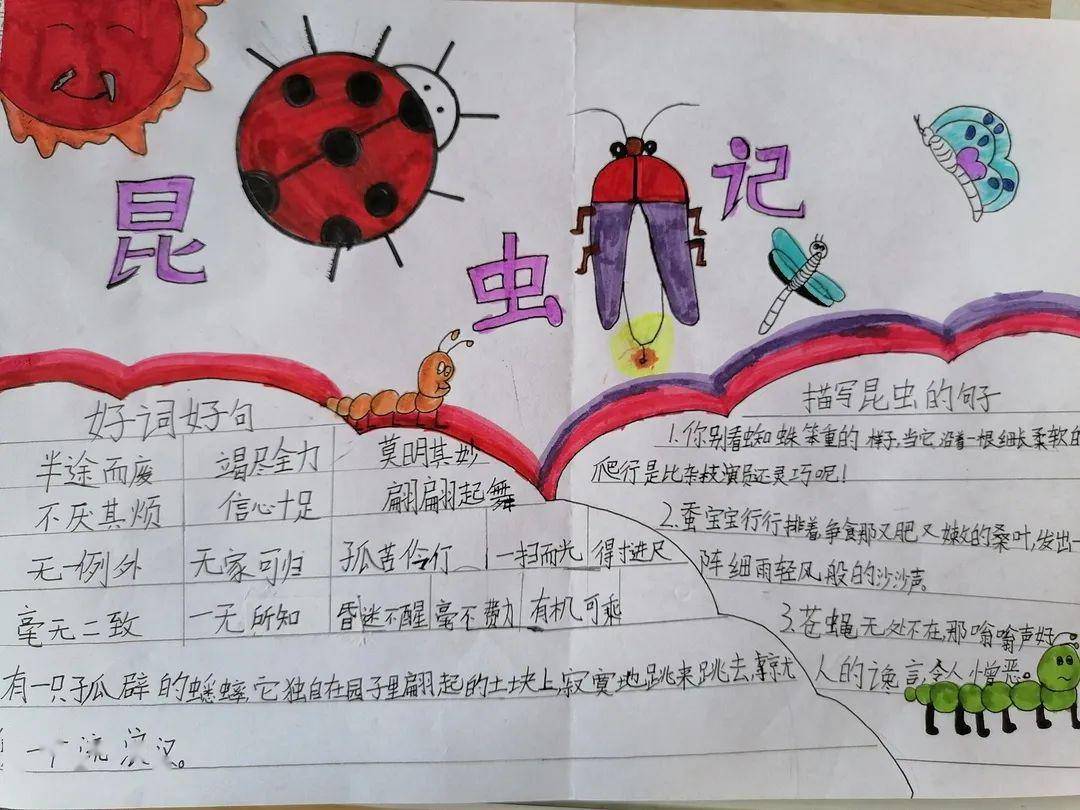 昆虫记
好词好句
半途而废 竭尽全力 莫明其妙
不厌其烦 信心十足 翩翩起舞
无一例外 无家可归 孤苦伶仃 一扫而光 得寸进尺
毫无二致 一无所知 昏迷不醒 毫不费力 有机可乘
有一只孤僻的蟋蟀,它独自在园子里翻起的土块上,寂寞地跳来跳去,就尤
一个流浪汉。
描写昆虫的句子
1.你别看蜘蛛笨重的样子,当它沿着一根细长柔软的
爬行是比杂技演员还灵巧呢!
2.蚕宝宝行行排着争食那又肥又嫩的桑叶,发出一
阵细雨轻风般的沙沙声。
3.苍蝇无处不在,那嗡嗡声好
人的谗言,令人憎恶。